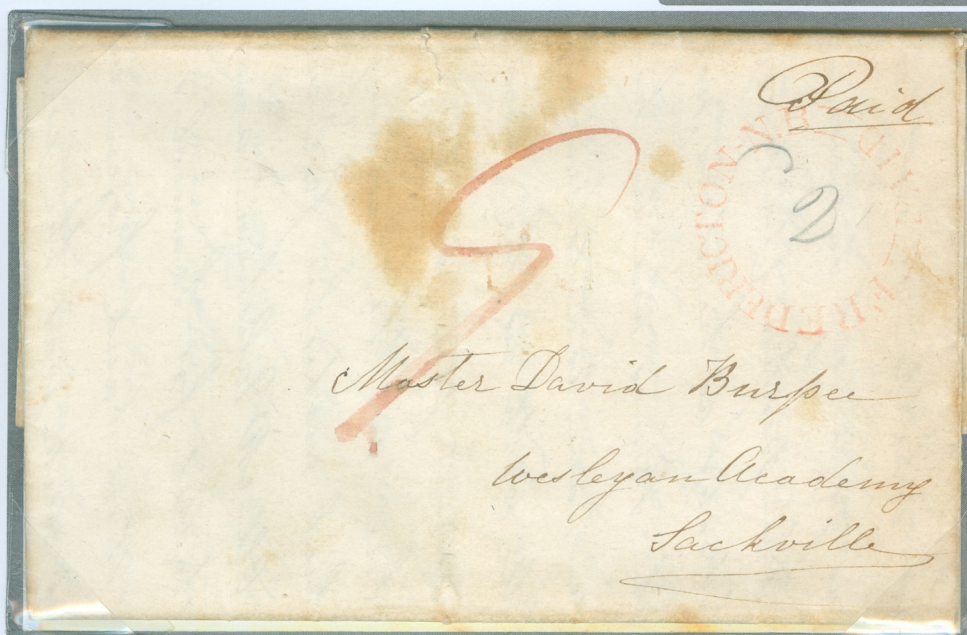 Paid
PAID FREDERICTON. N.B.
9
2
Master David Burpee
Wesleyan Academy
Sackville